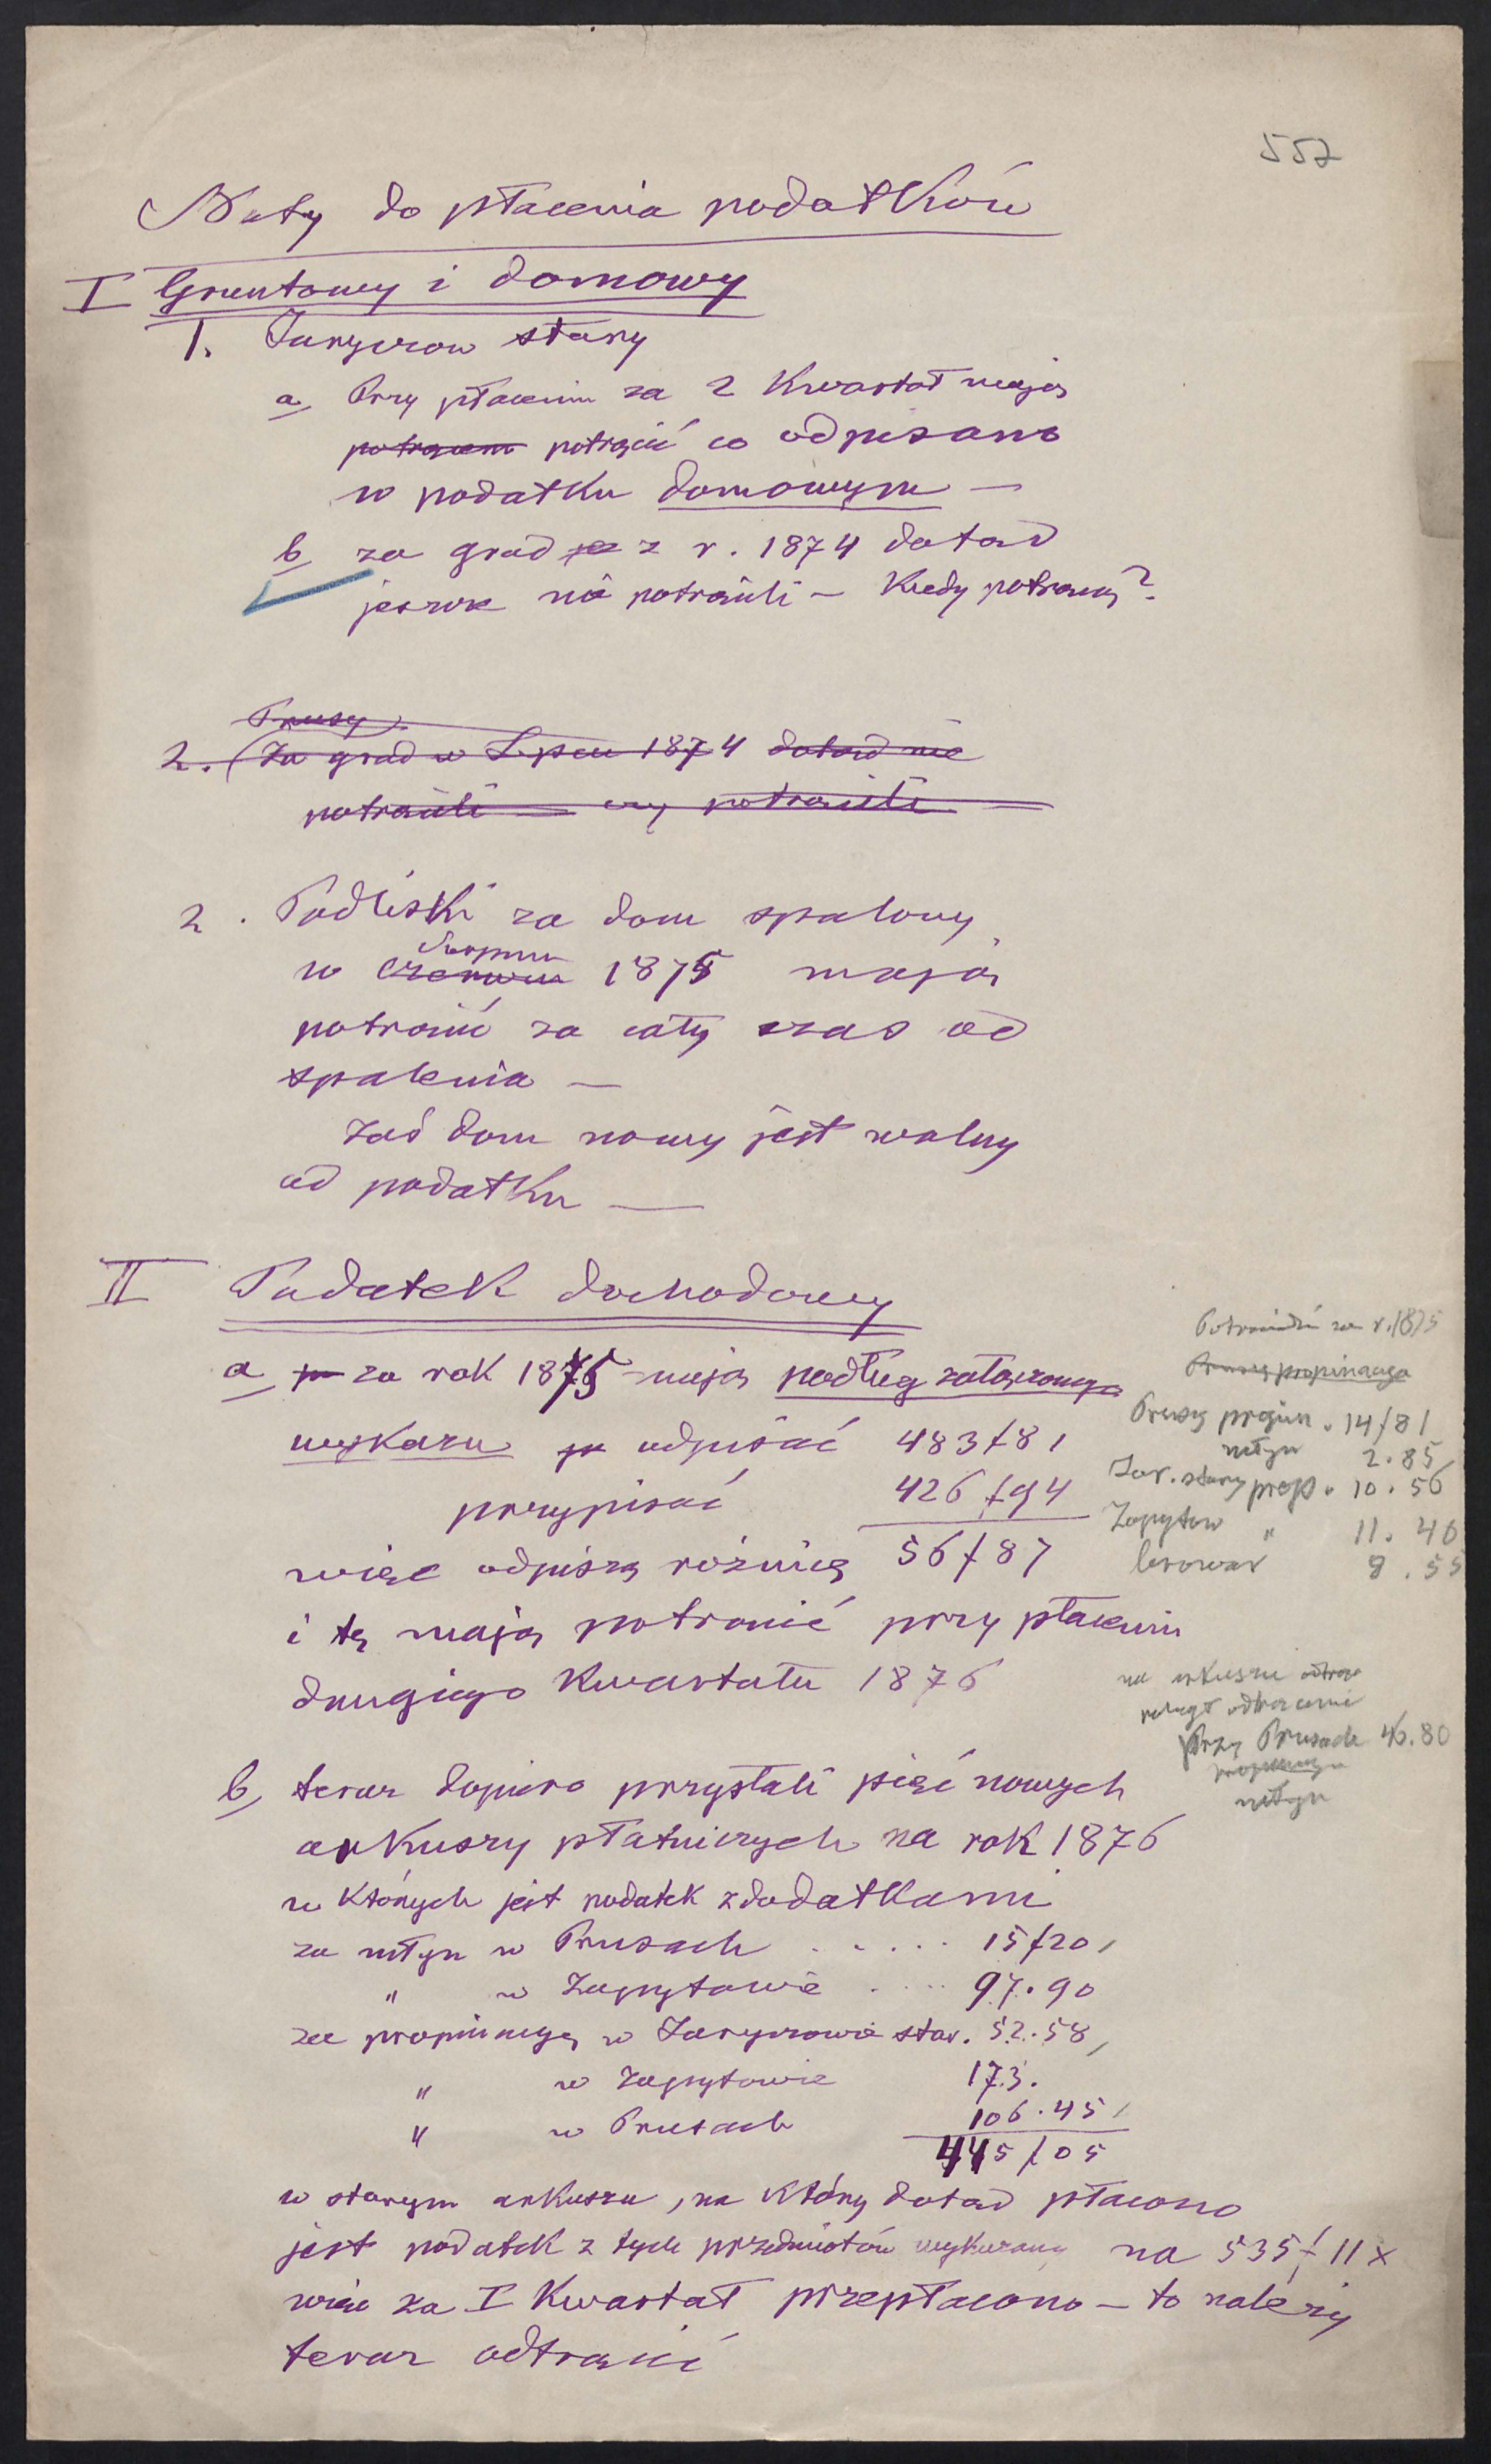 557
Noty do płacenia podatków
I Gruntowy i domowy
1. Jaryczow stary
a, Przy płaceniu za 2 Kwartał mają
potrącem potrącić co odpisano
w podatku domowym —
b, za grad z r. 1874 dotąd
jeszcze nie potrącili — Kiedy potrącą?
Prusy
2. (Za grad w Lipcu 1874 dotąd nie
potrącili — czy potrącili —
2. Podliski za dom spalony
Sierpniu
w Czerwcu 1875 mają
potrącić za cały czas od
spalenia —
zaś dom nowy jest wolny
od podatku —
II Podatek dochodowy
a, za rok 1875 mają podług załączonego
wykazu odpisać 483 f 81
przypisać 426 f 94
więc odpiszą rożnicę 56 f 87
i tę mają potrącić przy płaceniu
drugiego Kwartału 1876
Potrącić za r. 1875
Prusy propinacya
Prusy propin. 14 f 81
młyn 2.85
Jar. stary prop. 10.56
Zapytow " 11.46
browar 9.55
na arkuszu
Przy Prusach 46.80
propinacya
młyn
b, teraz dopiero przysłali pięć nowych
arkuszy płatniczych na rok 1876
w Których jest podatek z dodatkami
za młyn w Prusach ..... 15 f 20,
" w Zapytowie .... 97.90
za propinacyę w Jaryczowie star. 52.58,
" w Zapytowie 173.
" w Prusach 106.45,
445 f 05
w starym arkuszu, na Który dotąd płacono
jest podatek z tych przedmiotów wykazany na 535 f 11 x
więc za I Kwartał przepłacono — to należy
teraz odtrącić